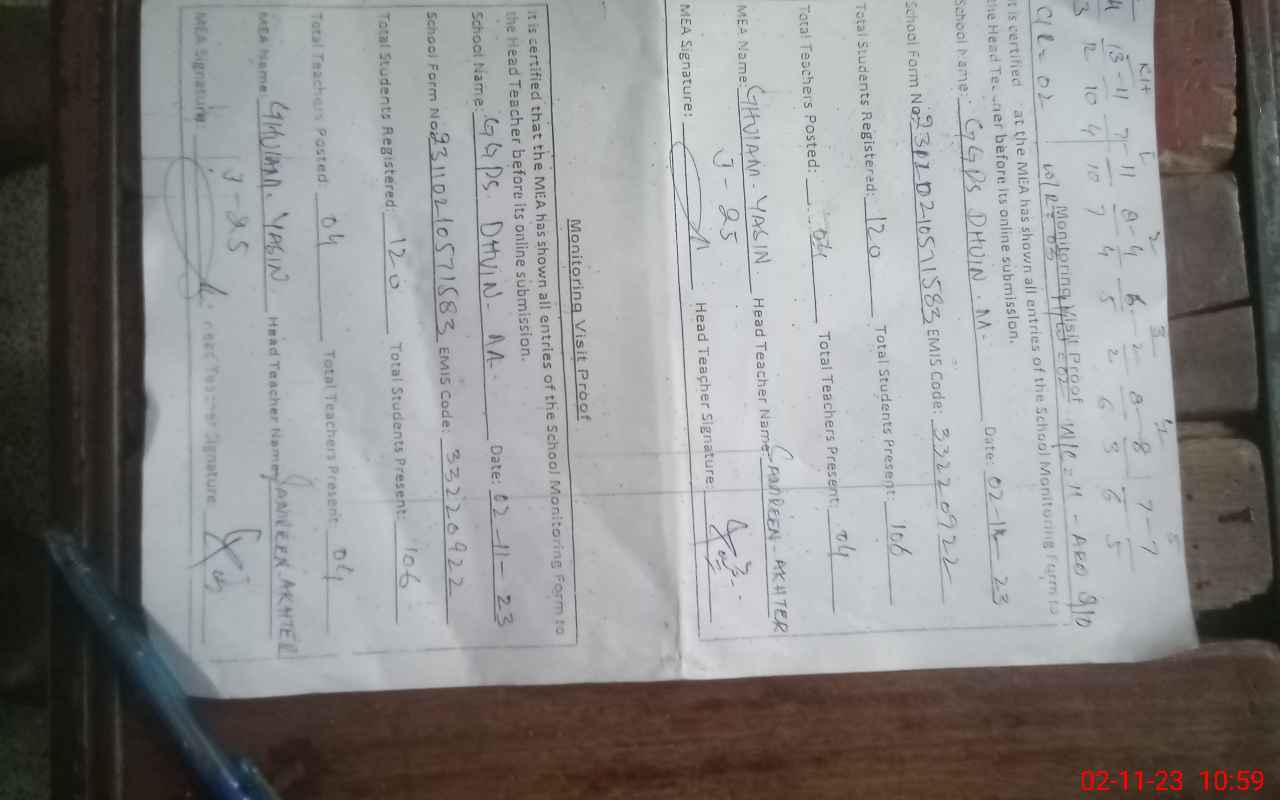 K1+ 1 2 3 4 5
13-11 7-11 8-4 6-2 8-8 7-7
3 12 10 4 10 7 4 5 2 6 3 6 5
C/R = 02 W/R = 03 W/C = 11 - ABO 9/10
Monitoring Visit Proof
It is certified at the MEA has shown all entries of the School Monitoring Form to
the Head Teacher before its online submission.
School Name: GGPS DHUIN. M. Date: 02-11-23
School Form No. EMIS Code: 33220922
Total Students Registered: 120 Total Students Present: 106
Total Teachers Posted: 04 Total Teachers Present: 04
MEA Name: GHULAM. YASIN. Head Teacher Name: PARVEEN-AKHTER
J-25
MEA Signature: Head Teacher Signature:
Monitoring Visit Proof
It is certified that the MEA has shown all entries of the School Monitoring Form to
the Head Teacher before its online submission.
School Name: GGPS. DHUIN. M. Date: 02-11-23
School Form No: 93110210571583 EMIS Code: 33220922
Total Students Registered: 120 Total Students Present: 106
Total Teachers Posted: 04 Total Teachers Present: 04
MEA Name: GHULAM. YASIN Head Teacher Name: PARVEEN. AKHTER
J-25
MEA Signature: Head Teacher Signature
02-11-23 10:59